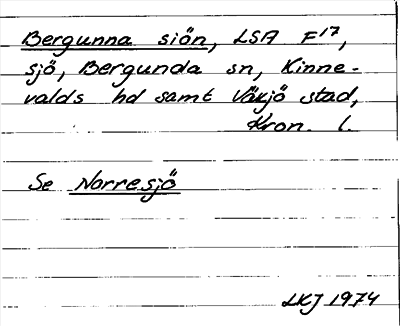 Bergunna siön, LSA F17,
sjö, Bergunda sn, Kinne-
valds hd samt Växjö stad,
Kron. l.
Se Norresjö
LKJ 1974